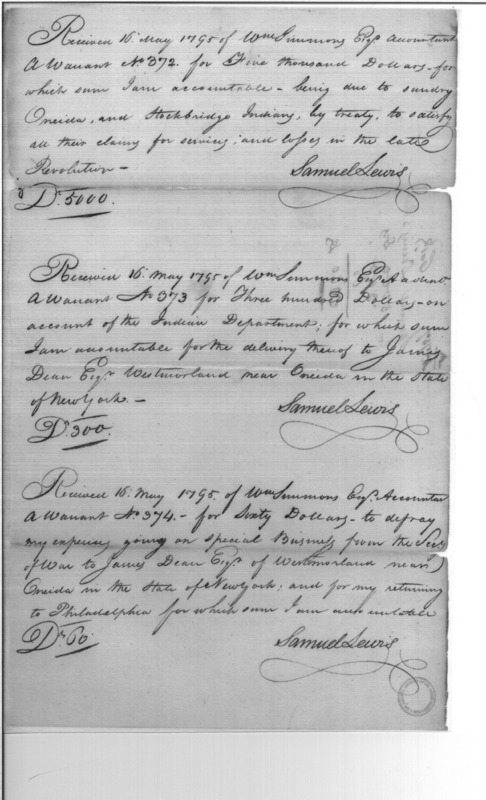 Received 16. May 1795 of Wm Simmons Esqr. Accountant
A Warrant No 372. for Five thousand Dollars - for
which sum I am accountable - being due to sundry
Oneida, and Stockbridge Indians, by treaty, to satisfy
all their claims for services, and losses in the late
Revolution -
Samuel Lewis
Drs. 5000.
Received 16. May 1795 of Wm Simmons Esqr.
A Warrant No 373 for Three hundred Dollars - on
account of the Indian Department; for which sum
I am accountable for the delivery thereof to James
Dean Esqr. Westmorland near Oneida in the State
of New York. -
Samuel Lewis
Drs. 300.
Received 16. May 1795. of Wm Simmons Esqr. Accountan
A Warrant No 374. - for Sixty Dollars - to defray
my expences going on special Business from the Secy
of War to James Dean Esqr. of Westmorland near
Oneida in the State of New York; and for my returning
to Philadelphia for which sum I am accountable
Drs. 60.
Samuel Lewis